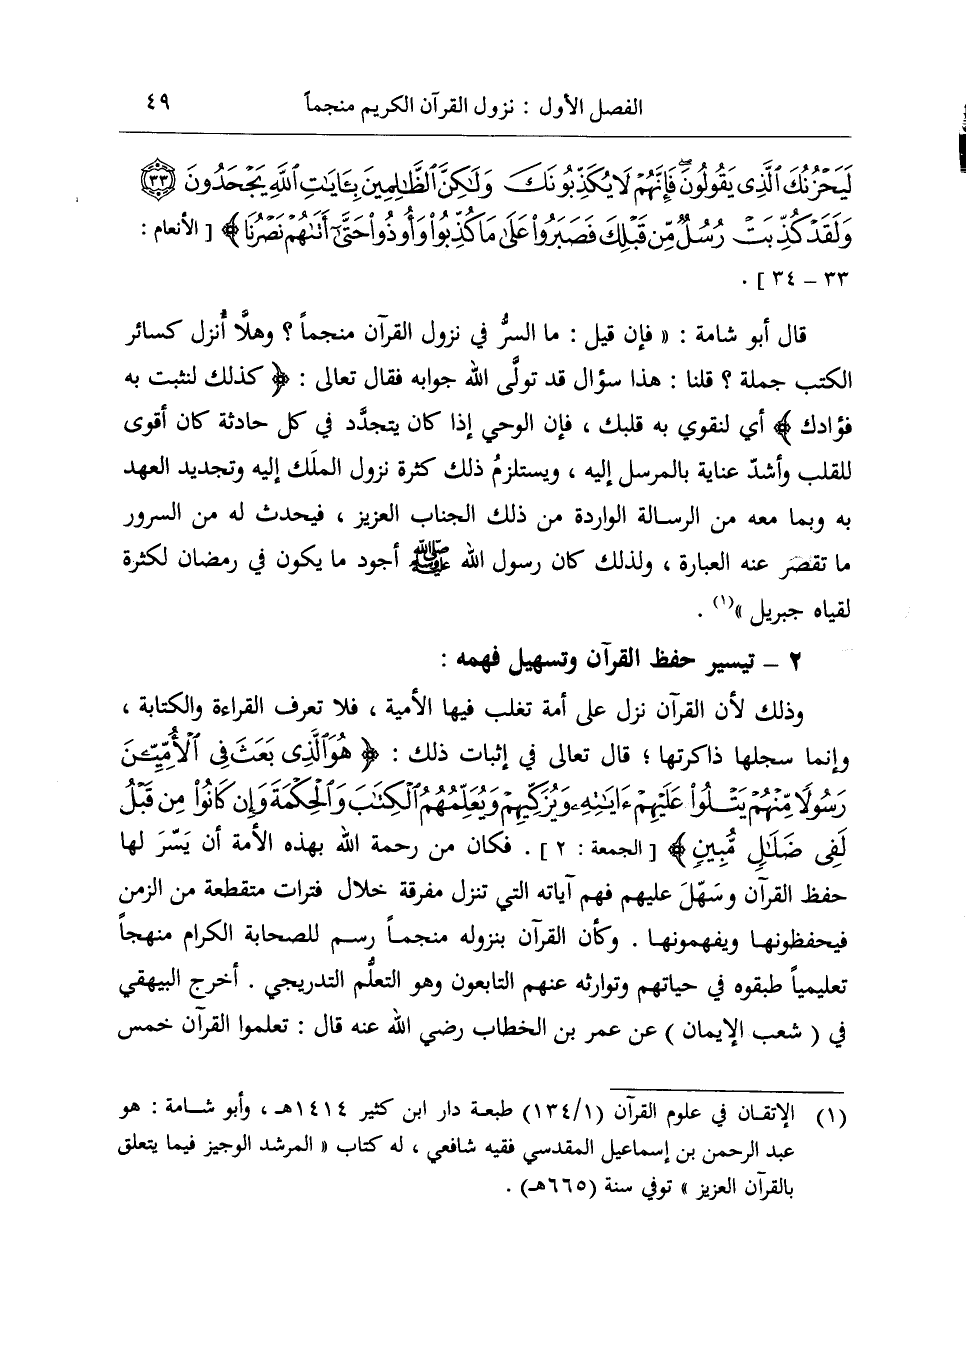 الفصل الأول : نزول القرآن الكريم منجماً ٤٩
لَيَحْزُنُكَ الَّذِى يَقُولُونَ فَإِنَّهُمْ لَا يُكَذِّبُونَكَ وَلَٰكِنَّ الظَّٰلِمِينَ بِـَٔايَٰتِ اللَّهِ يَجْحَدُونَ ٣٣
وَلَقَدْ كُذِّبَتْ رُسُلٌ مِّن قَبْلِكَ فَصَبَرُوا۟ عَلَىٰ مَا كُذِّبُوا۟ وَأُوذُوا۟ حَتَّىٰٓ أَتَىٰهُمْ نَصْرُنَا ﴾ [ الأنعام :
٣٣ - ٣٤ ] .
قال أبو شامة : « فإن قيل : ما السرُّ في نزول القرآن منجماً ؟ وهلَّا أُنزل كسائر
الكتب جملة ؟ قلنا : هذا سؤال قد تولَّى الله جوابه فقال تعالى : ﴿ كذلك لنثبت به
فؤادك ﴾ أي لنقوي به قلبك ، فإن الوحي إذا كان يتجدَّد في كل حادثة كان أقوى
للقلب وأشدّ عناية بالمرسل إليه ، ويستلزمُ ذلك كثرة نزول الملَك إليه وتجديد العهد
به وبما معه من الرسالة الواردة من ذلك الجناب العزيز ، فيحدث له من السرور
ما تقصر عنه العبارة ، ولذلك كان رسول الله ﷺ أجود ما يكون في رمضان لكثرة
لقياه جبريل »(١) .
٢ - تيسير حفظ القرآن وتسهيل فهمه :
وذلك لأن القرآن نزل على أمة تغلب فيها الأمية ، فلا تعرف القراءة والكتابة ،
وإنما سجلها ذاكرتها ؛ قال تعالى في إثبات ذلك : ﴿ هُوَ الَّذِى بَعَثَ فِى الْأُمِّيِّـۧنَ
رَسُولًا مِّنْهُمْ يَتْلُوا۟ عَلَيْهِمْ ءَايَٰتِهِۦ وَيُزَكِّيهِمْ وَيُعَلِّمُهُمُ الْكِتَٰبَ وَالْحِكْمَةَ وَإِن كَانُوا۟ مِن قَبْلُ
لَفِى ضَلَٰلٍ مُّبِينٍ ﴾ [ الجمعة : ٢ ] . فكان من رحمة الله بهذه الأمة أن يَسَّرَ لها
حفظ القرآن وسَهَّلَ عليهم فهم آياته التي تنزل مفرقة خلال فترات متقطعة من الزمن
فيحفظونها ويفهمونها . وكأن القرآن بنزوله منجماً رسم للصحابة الكرام منهجاً
تعليمياً طبقوه في حياتهم وتوارثه عنهم التابعون وهو التعلُّم التدريجي . أخرج البيهقي
في ( شعب الإيمان ) عن عمر بن الخطاب رضي الله عنه قال : تعلموا القرآن خمس
(١) الإتقان في علوم القرآن (١/ ١٣٤) طبعة دار ابن كثير ١٤١٤هـ ، وأبو شامة : هو
عبد الرحمن بن إسماعيل المقدسي فقيه شافعي ، له كتاب « المرشد الوجيز فيما يتعلق
بالقرآن العزيز » توفي سنة (٦٦٥هـ) .